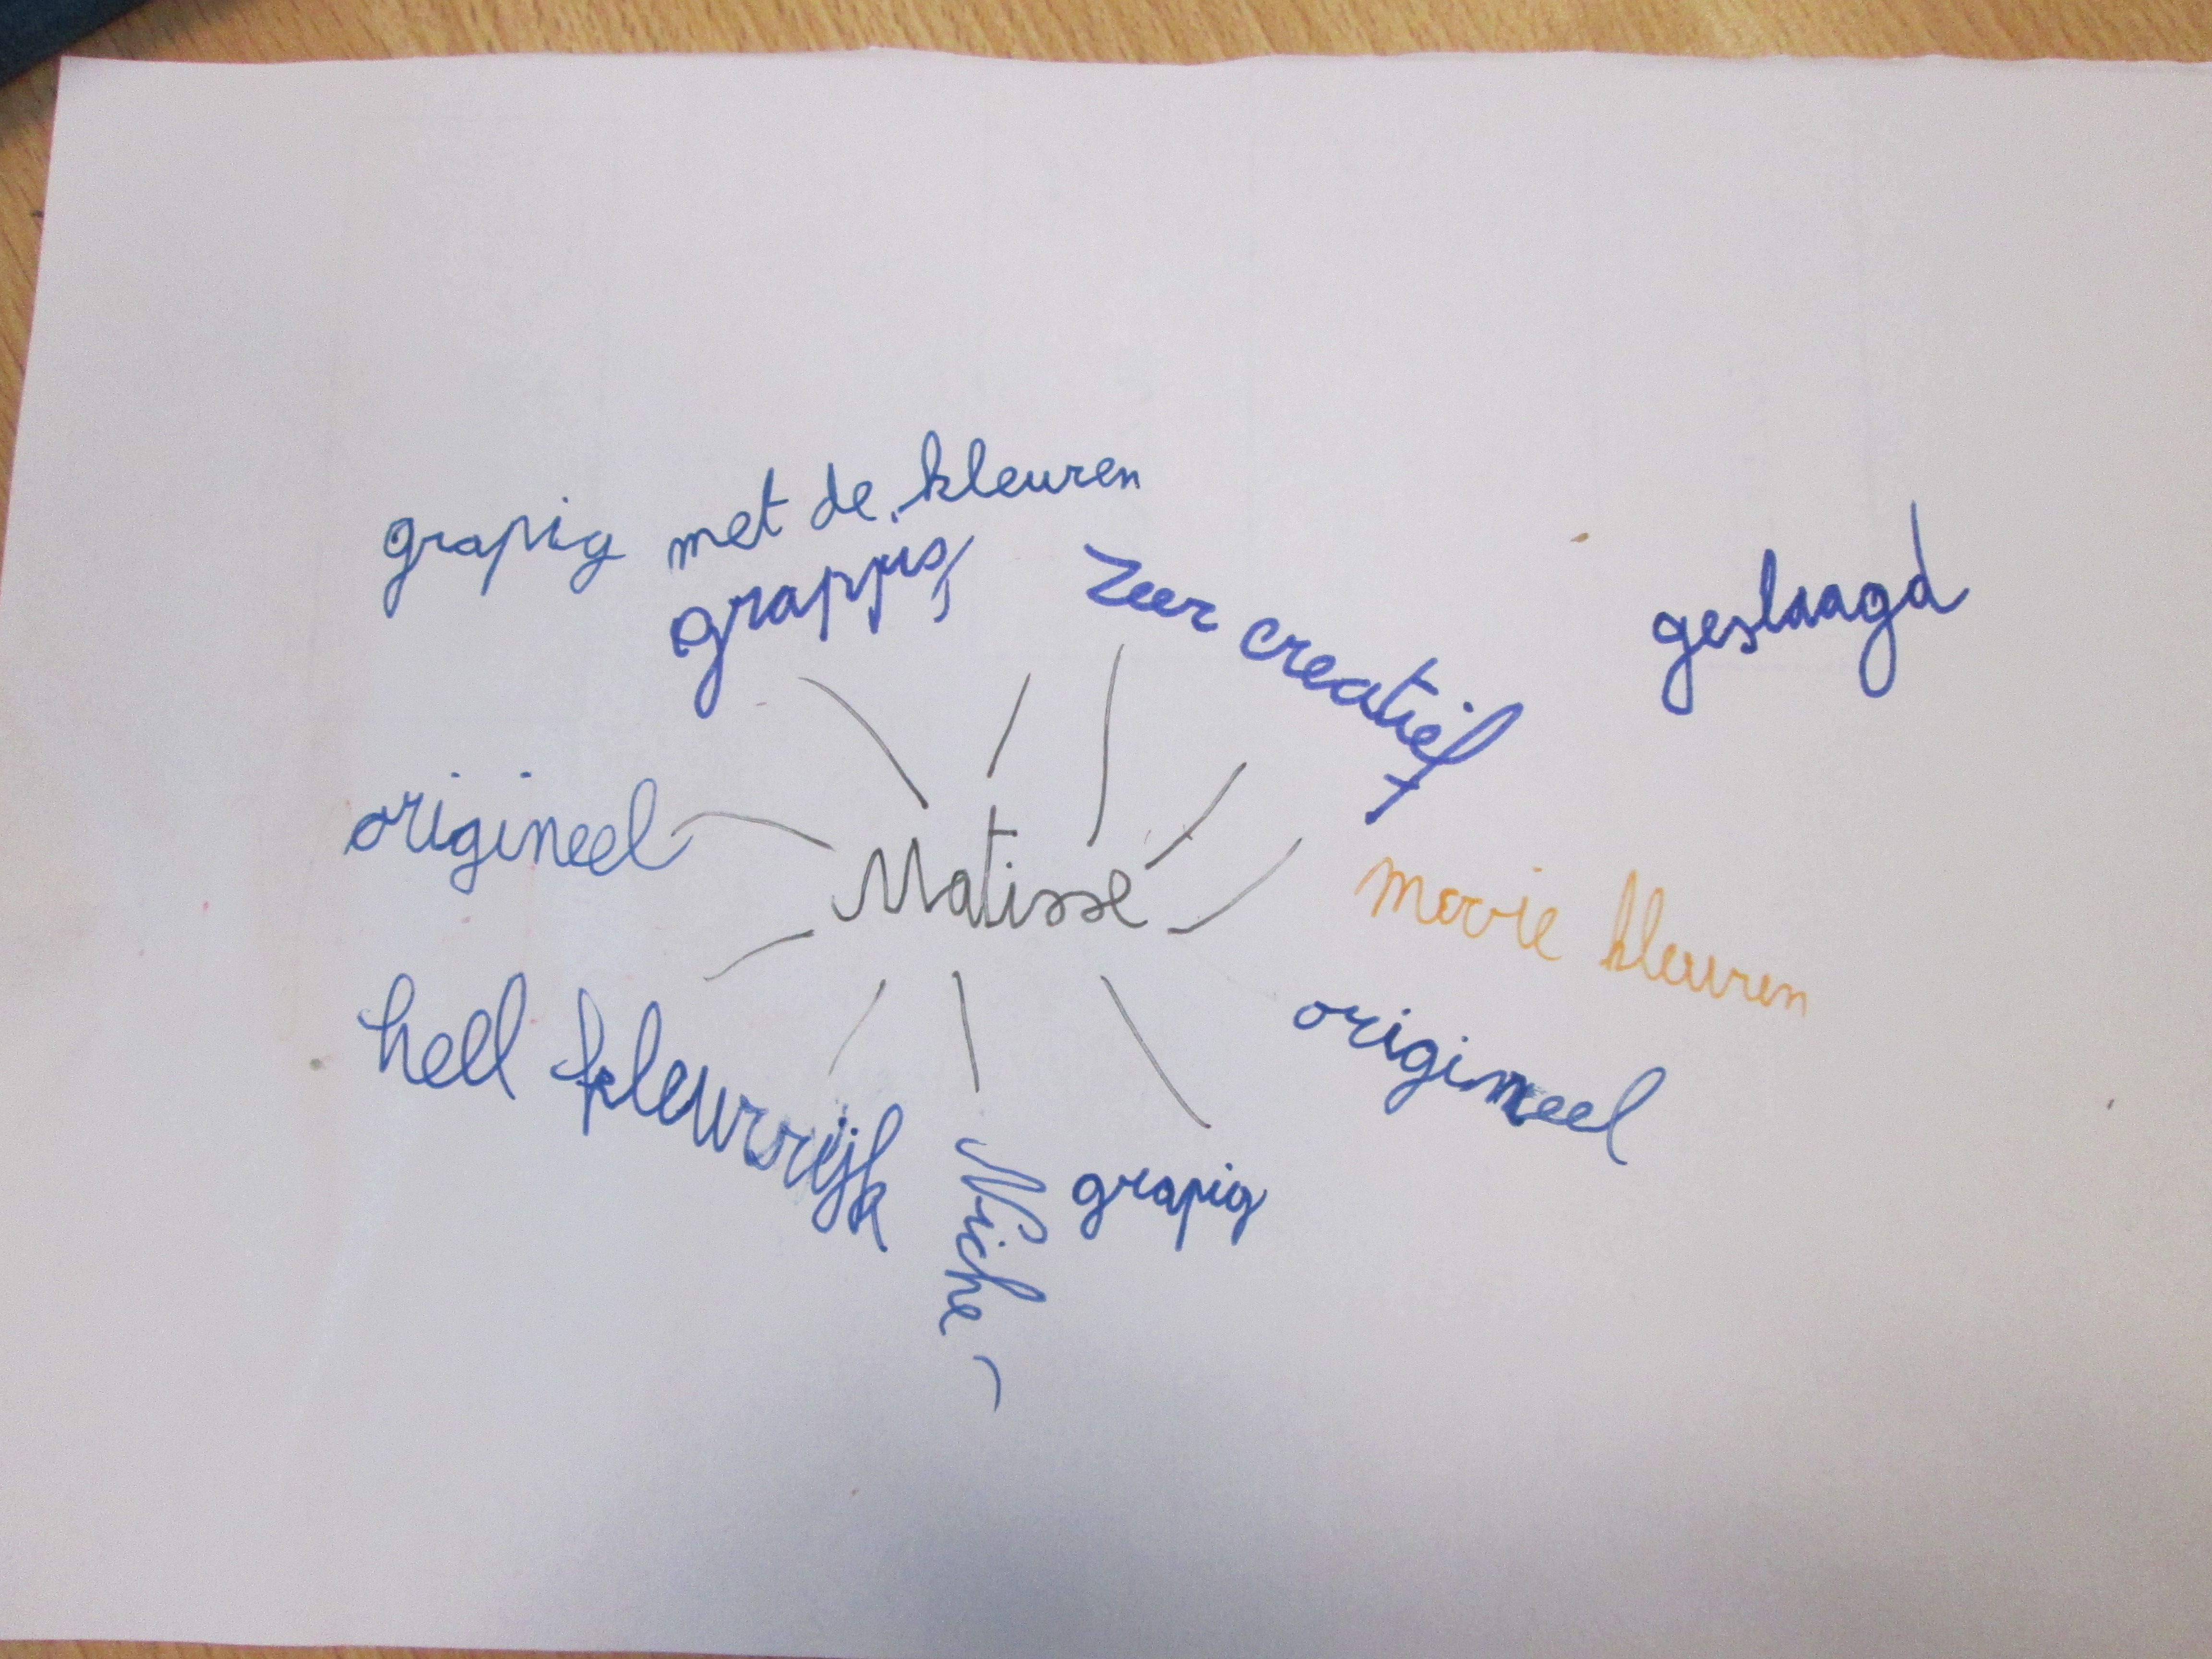 grapig met de kleuren
grappig
zeer creatief
geslaagd
origineel
Matisse
moovie kleuren
origineel
heel kleurrijk
grapig